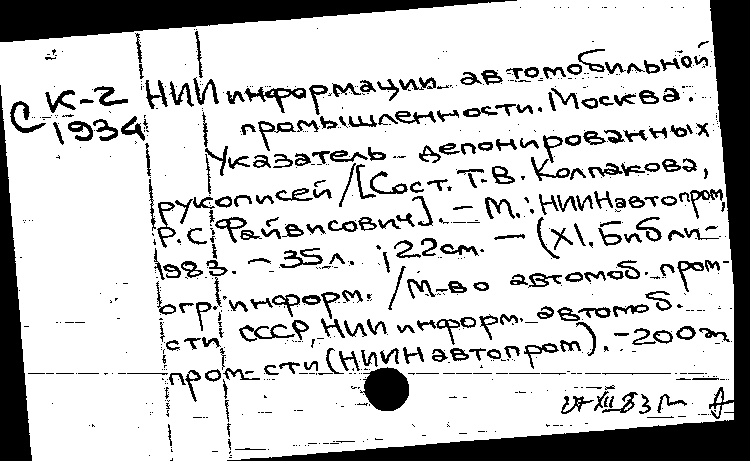 С К-2 НИИ информации автомобильной
1934 промышленности. Москва.
Указатель депонированных
рукописей /[Сост. Т.В. Колпакова,
Р.С. Файвисович]. – М.: НИИНавтопром,
1983. – 35 л. ; 22 см. – (XI. Библи-
огр. информ. / М-во автомоб. пром-
сти СССР, НИИ информ. автомоб.
пром-сти (НИИНавтопром). – 200 эк
XII 83